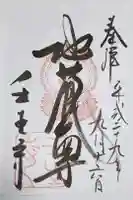 奉拝
平成二十九年九月十六日
地蔵尊
壬生寺